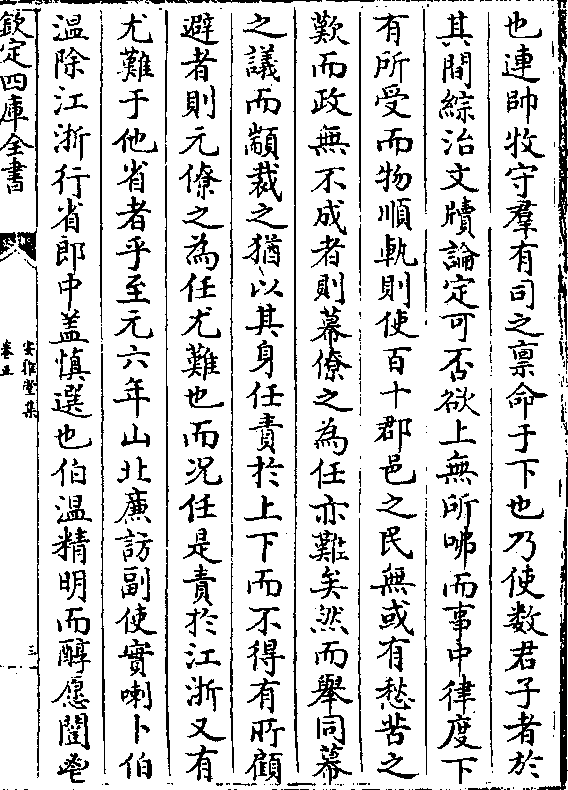 也連帥牧守羣有司之禀命于下也乃使数君子者於
其間綜治文牘論定可否欲上無所咈而事中律度下
有所受而物順軌則使百十郡邑之民無或有愁苦之
歎而政無不成者則幕僚之為任亦難矣然而舉同幕
之議而顓裁之猶以其身任責於上下而不得有所顧
避者則元僚之為任尤難也而况任是責於江浙又有
尤難于他省者乎至元六年山北亷訪副使實喇卜伯
温除江浙行省郎中盖慎選也伯温精明而醇愿闓
欽定四庫全書
安雅堂集
卷五
三